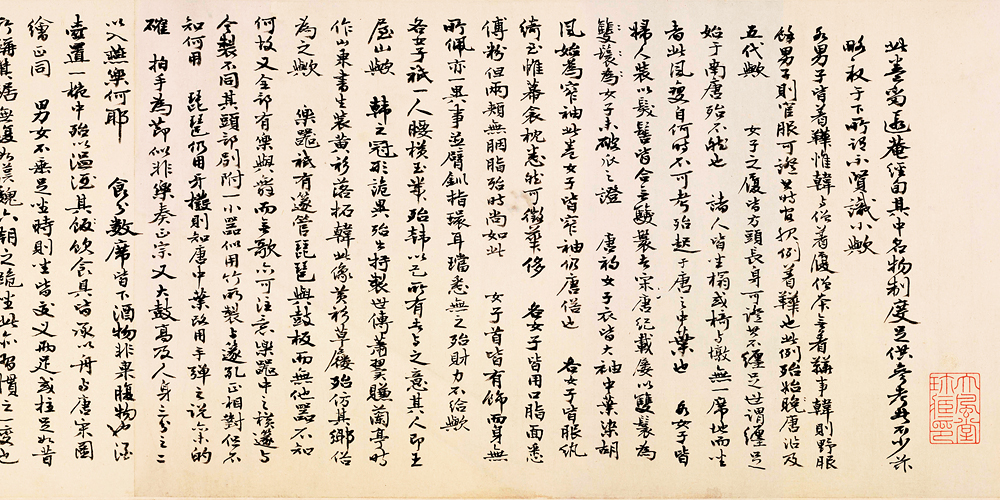 此卷當退菴經自其中名物制度足供參考者不少詐
略取于下所設示賢識小歟
各男子皆着鞾惟韓與僧着履僧余言着鞾事韓則野服
餘男子則官服可證其時官規例着鞾也此例殆始晚唐沿及
五代歟 女子之履皆方頭長身可證其不纏足世謂纏足
始于南唐殆不然也 諸人皆坐榻或椅與墩無一席地而坐
者此風變自何時不可考殆起于唐之中葉也 各女子皆
婦人裝以髮髻皆合無雙鬟者宋唐紀載屢以雙鬟為
雙鬟為女子未破瓜之證 唐初女子衣皆大袖中葉染胡
風始為窄袖此卷女子皆窄袖仍唐僧也 各女子皆服紈
綺至帷幕衾枕悉然可徵華侈 各女子皆用口脂面悉
傅粉但兩頰無胭脂殆時尚如此 女子首皆有飾而身無
所佩亦一異事並臂釧指環耳璫悉無之殆財力不給歟
各女子祇一人腰橫玉葉殆韓以己所有者與之意其人即王
屋山歟 韓之冠形詭異殆出特製世傳蕭翼賺蘭亭時
作山東書生裝黃衫落拓韓此像黃衫草屨殆仿其鄉俗
為之歟 樂器祇有篴管琵琶與鼓板而無他器不知
何故又全部有樂與器而無歌亦可注意樂器中之橫篴與
今製不同其頭部別附一小器似用竹所製與篴孔正相對但不
知何用 琵琶仍用牙撥則知唐中葉改用手彈之說余的
確 拍手為節似非樂奏正宗又大鼓高及人身三分之二
以入燕樂何耶 食與數席皆下酒物非果腹物也酒
壺置一椀中殆以溫酒其飯飲食具皆承以舟與唐宋圖
繪正同 男女不垂足坐時則坐皆交叉兩足或拄足如昔
所稱其居無復如漢魏六朝之跪坐此亦習慣之變也
大風堂
珍藏印